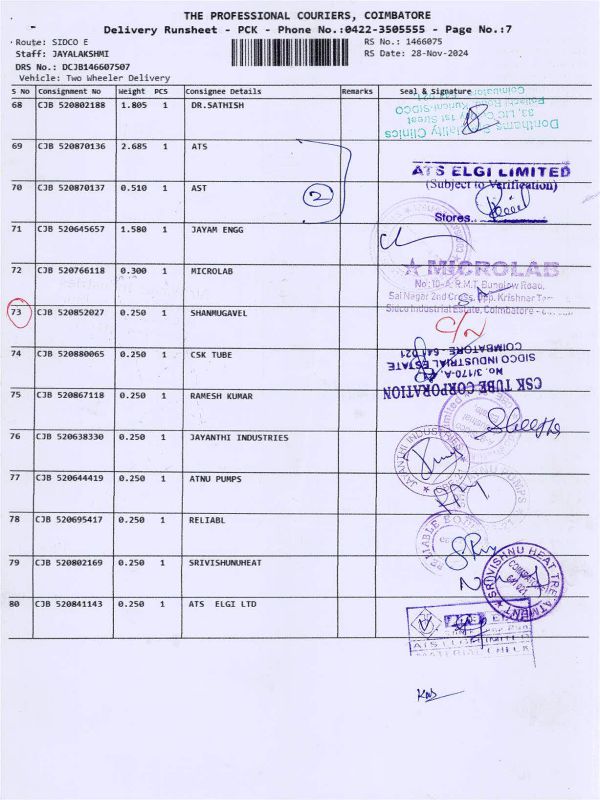 THE PROFESSIONAL COURIERS, COIMBATORE
Delivery Runsheet - PCK - Phone No.:0422-3505555 - Page No.:7
Route: SIDCO E
RS No.: 1466075
Staff: JAYALAKSHMI
RS Date: 28-Nov-2024
DRS No.: DCJB146607507
Vehicle: Two Wheeler Delivery
S No Consignment No Weight PCS Consignee Details Remarks Seal & Signature
68 CJB 520802188 1.805 1 DR.SATHISH
69 CJB 520870136 2.685 1 ATS
ATS ELGI LIMITED
(Subject to Verification)
70 CJB 520870137 0.510 1 AST 2
Stores..
71 CJB 520645657 1.580 1 JAYAM ENGG
72 CJB 520766118 0.300 1 MICROLAB
MICROLAB
No:10-A, R.M.T. Bunglow Road,
Sai Nagar 2nd Cross, Opp. Krishnar
Sidco Industrial Estate, Coimbatore -
73 CJB 520852027 0.250 1 SHANMUGAVEL
C/N
74 CJB 520880065 0.250 1 CSK TUBE
CSK TUBE CORPORATION
No. 3/170-A,
SIDCO INDUSTRIAL ESTATE
COIMBATORE - 641 021
75 CJB 520867118 0.250 1 RAMESH KUMAR
76 CJB 520638330 0.250 1 JAYANTHI INDUSTRIES
JAYANTHI INDUSTRIES
77 CJB 520644419 0.250 1 ATNU PUMPS
78 CJB 520695417 0.250 1 RELIABL
79 CJB 520802169 0.250 1 SRIVISHUNUHEAT
SRIVISHNU HEAT TREATMENT
80 CJB 520841143 0.250 1 ATS ELGI LTD